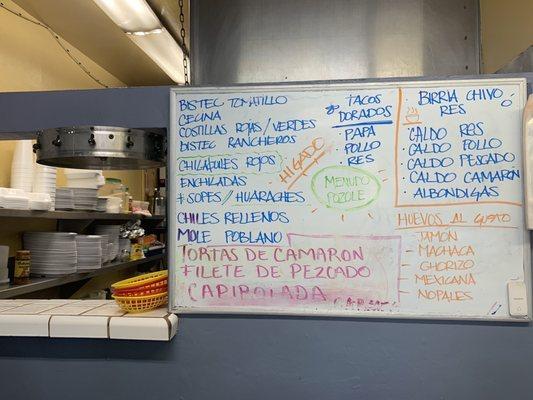 BISTEC TOMATILLO
CECINA
COSTILLAS ROJAS/VERDES
BISTEC RANCHEROS
CHILAQUILES ROJOS
ENCHILADAS
*SOPES/HUARACHES
CHILES RELLENOS
MOLE POBLANO
TORTAS DE CAMARON
FILETE DE PEZCADO
CAPIROLADA
HIGADO
TACOS
DORADOS
PAPA
POLLO
RES
MENUDO
POZOLE
BIRRIA CHIVO
RES
CALDO RES
CALDO POLLO
CALDO PESCADO
CALDO CAMARON
ALBONDIGAS
HUEVOS AL GUSTO
JAMÓN
MACHACA
CHORIZO
MEXICANA
NOPALES